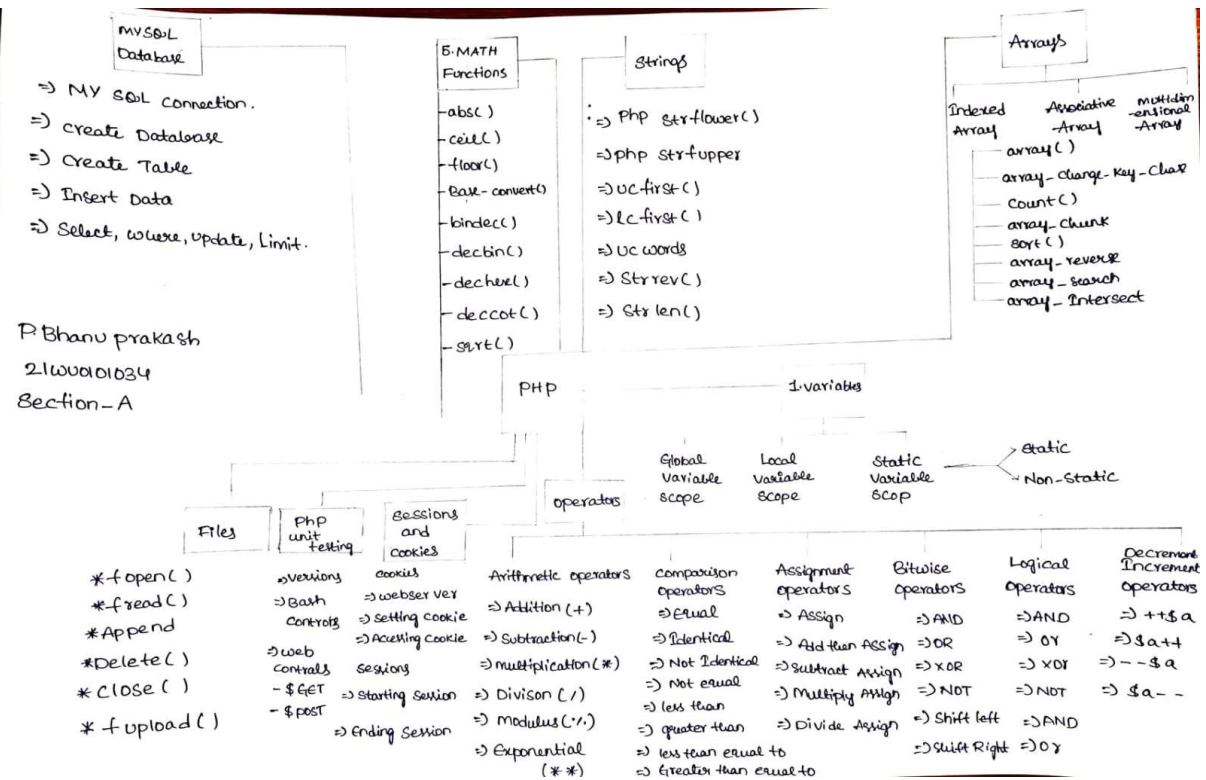 MYSQL
Database
=) MY SQL Connection.
=) Create Database
=) Create Table
=) Insert Data
=) Select, where, update, Limit.
P. Bhanu prakash
21WU0101034
Section-A
5.MATH
Functions
-abs()
-ceil()
-floor()
-Base-convert()
-bindec()
-decbin()
-dechex()
-deccot()
-sqrt()
Strings
:=) Php strflower()
=)php strfupper
=)ucfirst()
=)lcfirst()
=)uc words
=) Strrev()
=) Strlen()
Arrays
Indexed
Array
Associative
-Array
multidim
-ensional
-Array
array()
array_change-key-Chax
Count()
array_chunk
sort()
array_reverse
array_search
array_Intersect
PHP
1.variables
Global
Variable
Scope
Local
Variable
Scope
Static
Variable
Scop
Static
Non-Static
Files
*fopen()
*fread()
*Append
*Delete()
*Close()
*fupload()
Php
unit
testing
=)versions
=)Bash
Controls
=)web
Contrals
-$GET
-$post
Sessions
and
cookies
Cookies
=)webserver
=) Setting cookie
=) Accessing cookie
Sessions
=) Starting Session
=) Ending Session
Operators
Arithmetic operators
=) Addition (+)
=) Subtraction(-)
=)multiplication(*)
=) Divison (/)
=) modulus(%)
=) Exponential
(**)
Comparison
Operators
=)Equal
=)Identical
=) Not Identical
=) Not equal
=) less than
=) greater than
=) less than equal to
=) Greater than equal to
Assignment
Operators
=) Assign
=) Add then Assign
=)Subtract Assign
=) Multiply Assign
=) Divide Assign
Bitwise
Operators
=)AND
=)OR
=)XOR
=)NOT
=) Shift left
=)Shift Right
Logical
Operators
=)AND
=) or
=) xor
=)NOT
=)AND
=)Or
Decrement
Increment
Operators
=) ++$a
=)$a++
=)--$a
=) $a--